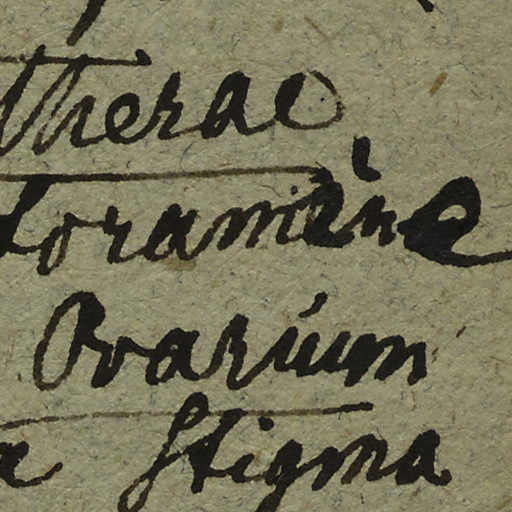 therae
foramine
Ovarium
a Stigma